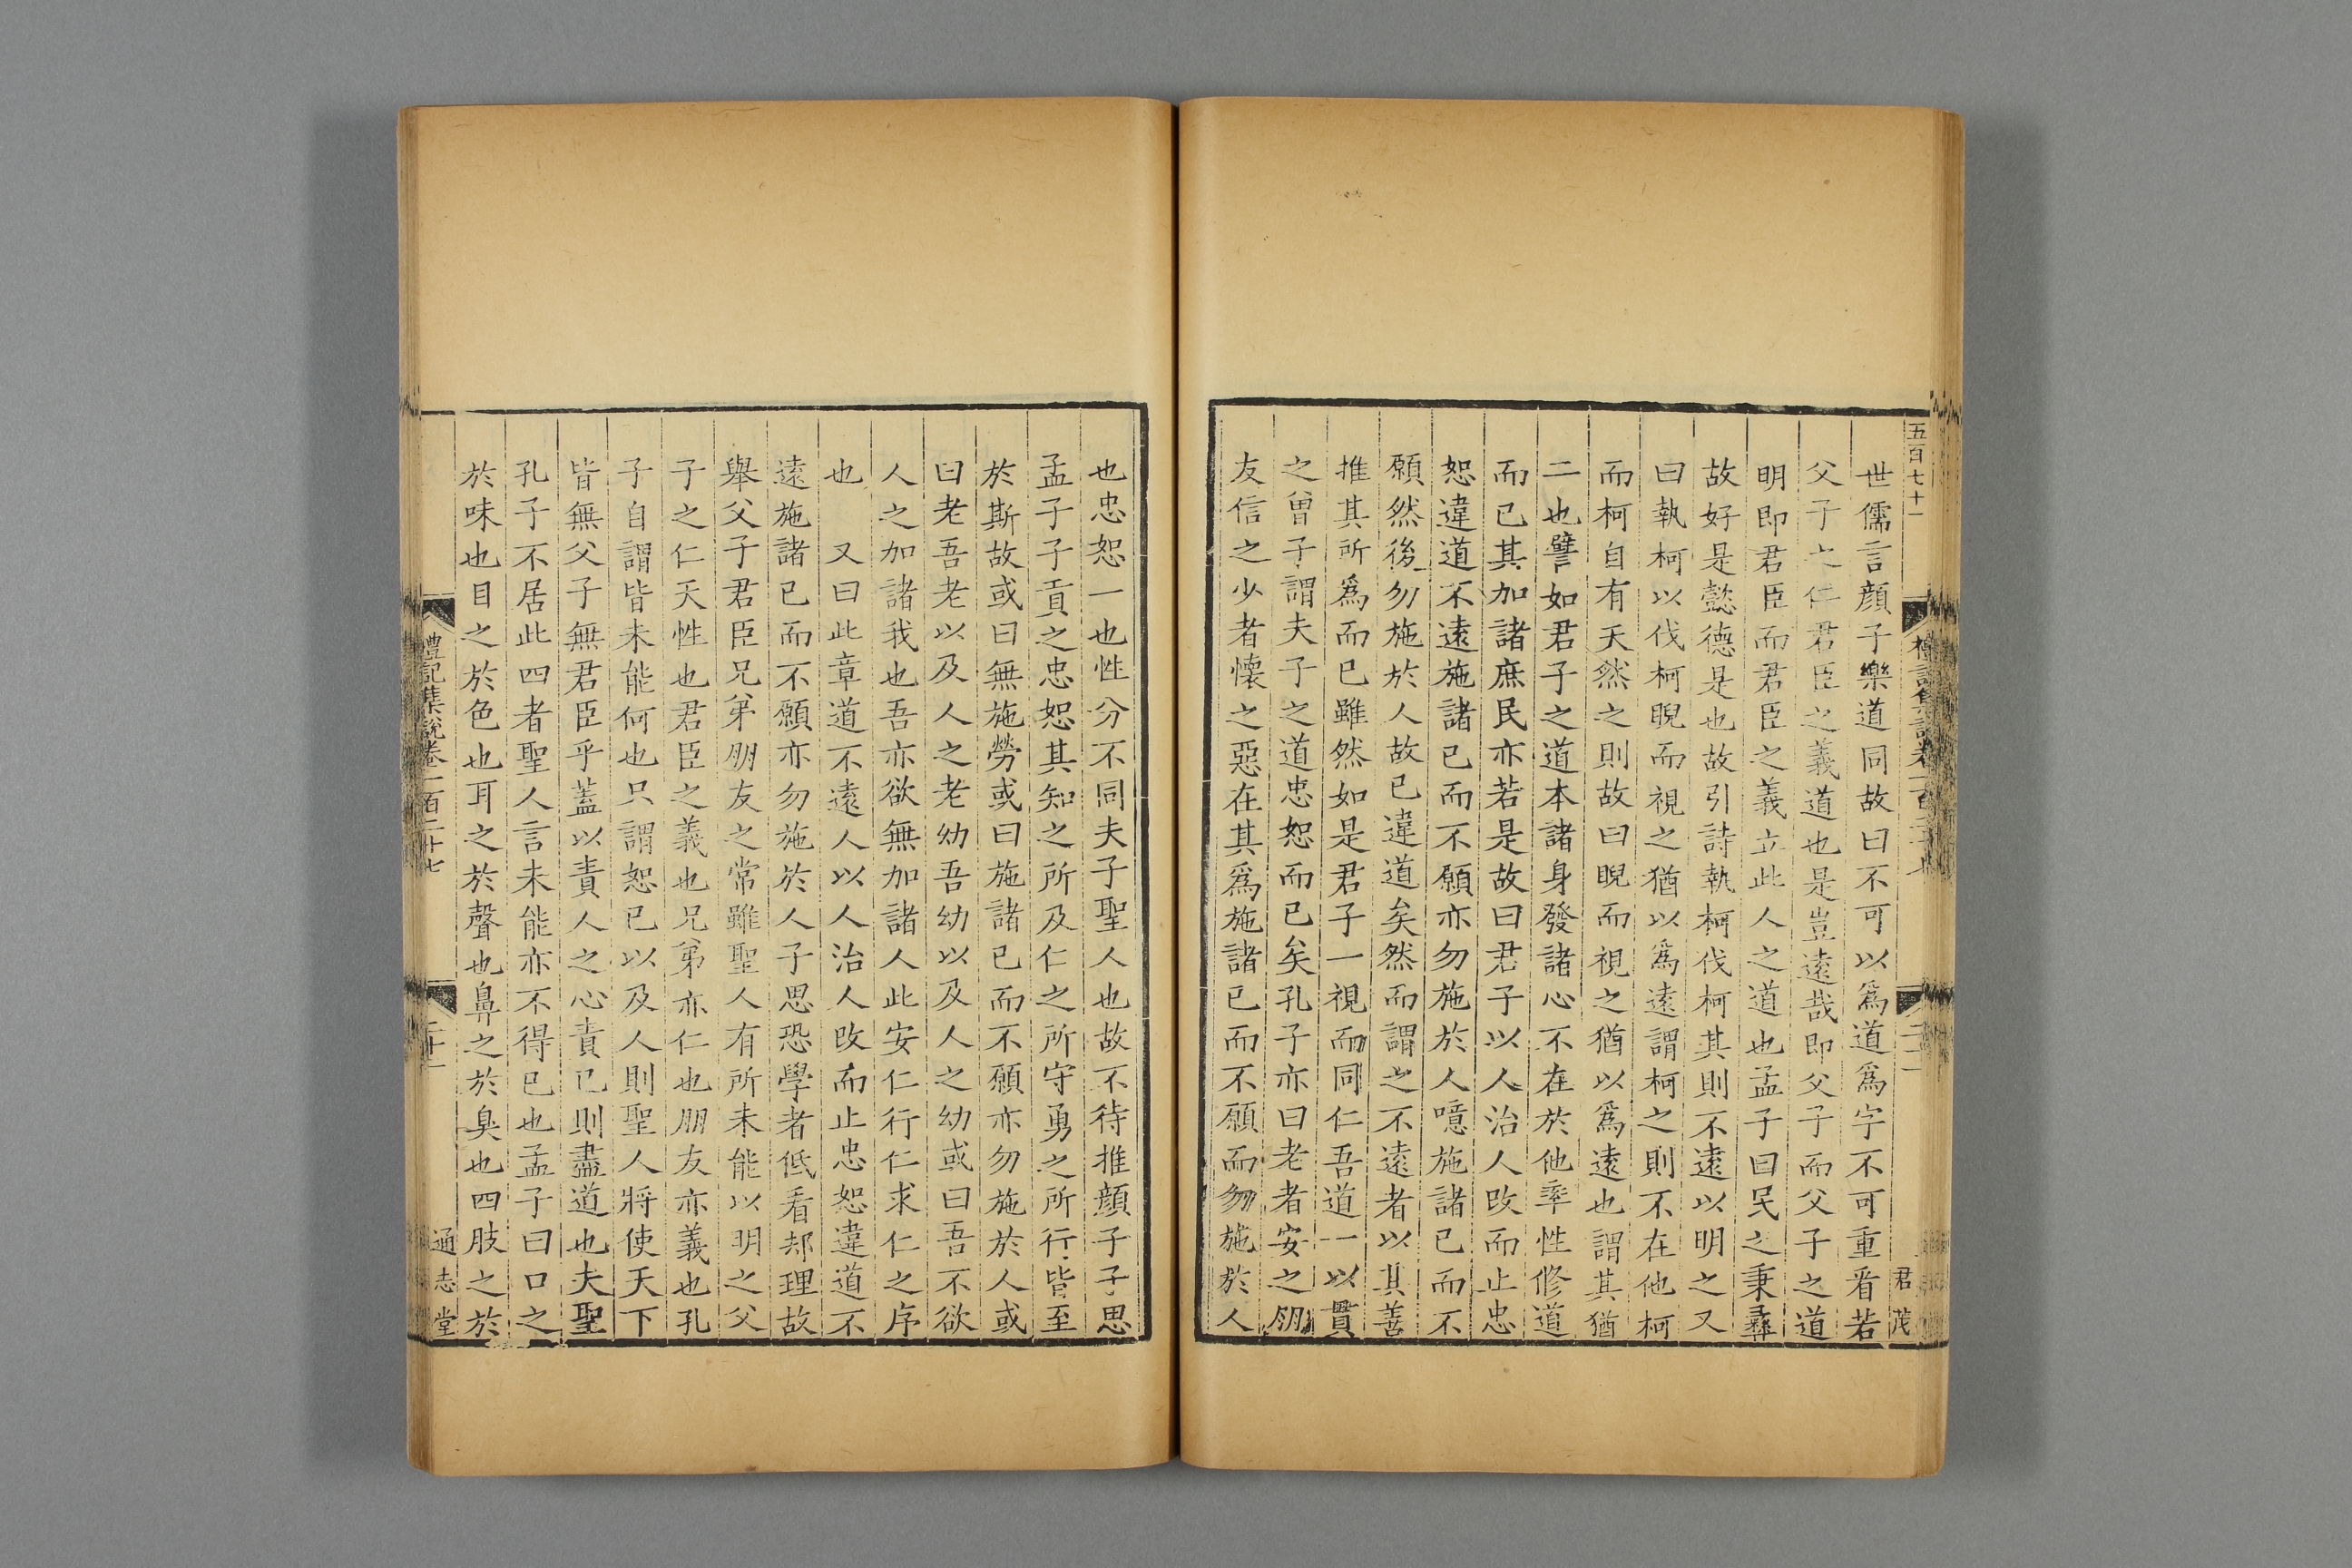 五百七十一
君茂
世儒言顔子樂道同故曰不可以爲道爲字不可重看若
父子之仁君臣之義道也是豈遠哉即父子而父子之道
明即君臣而君臣之義立此人之道也孟子曰民之秉彝
故好是懿德是也故引詩執柯伐柯其則不遠以明之又
曰執柯以伐柯睨而視之猶以爲遠謂柯之則不在他柯
而柯自有天然之則故曰睨而視之猶以爲遠也謂其猶
二也譬如君子之道本諸身發諸心不在於他率性修道
而已其加諸庶民亦若是故曰君子以人治人改而止忠
恕違道不遠施諸已而不願亦勿施於人噫施諸已而不
願然後勿施於人故已違道矣然而謂之不遠者以其善
推其所爲而已雖然如是君子一視而同仁吾道一以貫
之曾子謂夫子之道忠恕而已矣孔子亦曰老者安之朋
友信之少者懷之惡在其爲施諸已而不願而勿施於人
也忠恕一也性分不同夫子聖人也故不待推顔子子思
孟子子貢之忠恕其知之所及仁之所守勇之所行皆至
於斯故或曰無施勞或曰施諸已而不願亦勿施於人或
曰老吾老以及人之老幼吾幼以及人之幼或曰吾不欲
人之加諸我也吾亦欲無加諸人此安仁行仁求仁之序
也　又曰此章道不遠人以人治人改而止忠恕違道不
遠施諸已而不願亦勿施於人子思恐學者低看却理故
舉父子君臣兄弟朋友之常雖聖人有所未能以明之父
子之仁天性也君臣之義也兄弟亦仁也朋友亦義也孔
子自謂皆未能何也只謂恕已以及人則聖人將使天下
皆無父子無君臣乎蓋以責人之心責已則盡道也夫聖
孔子不居此四者聖人言未能亦不得已也孟子曰口之
於味也目之於色也耳之於聲也鼻之於臭也四肢之於
禮記集說卷一百二十七
二十一
通志堂